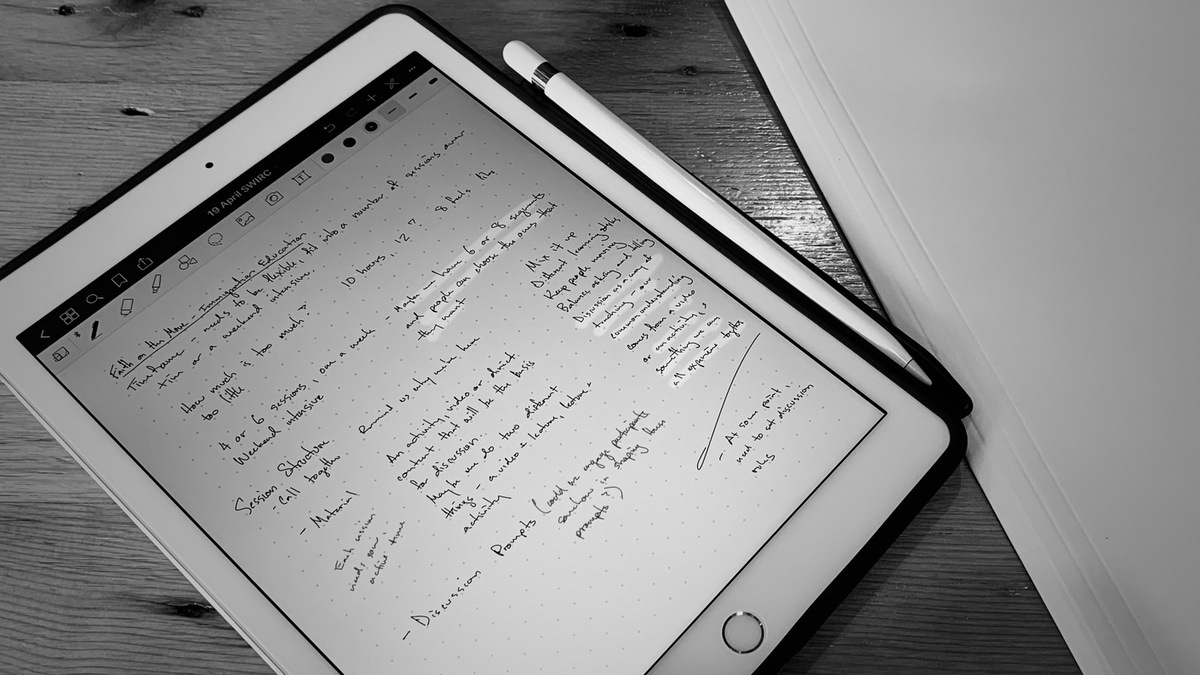 19 April SWIRC
Faith on the Move - Immigration Education
Timeframe - needs to be flexible, fit into a number of sessions over
time or a weekend intensive.
How much is too much?
too little
10 hours, 12? 8 feels like
4 or 6 sessions, 1 or a week
Weekend intensive
- Maybe we have 6 or 8 segments
and people can choose the ones that
they want
Session Structure
- Call together
Remind us why we're here
- Material
An activity, video or direct
content that will be the basis
for discussion.
Maybe we do two different
things - a video + lecture, lecture +
activity
Each session
needs some
active time
- Discussion Prompts (could we engage participants
somehow in shaping these
prompts?)
Mix it up
Different learning styles
Keep people moving
Balance asking and telling
Discussion as a way of
teaching - our
common understanding
comes from a video
or an activity,
something we can
all experience together
- At some point,
need to set discussion
rules